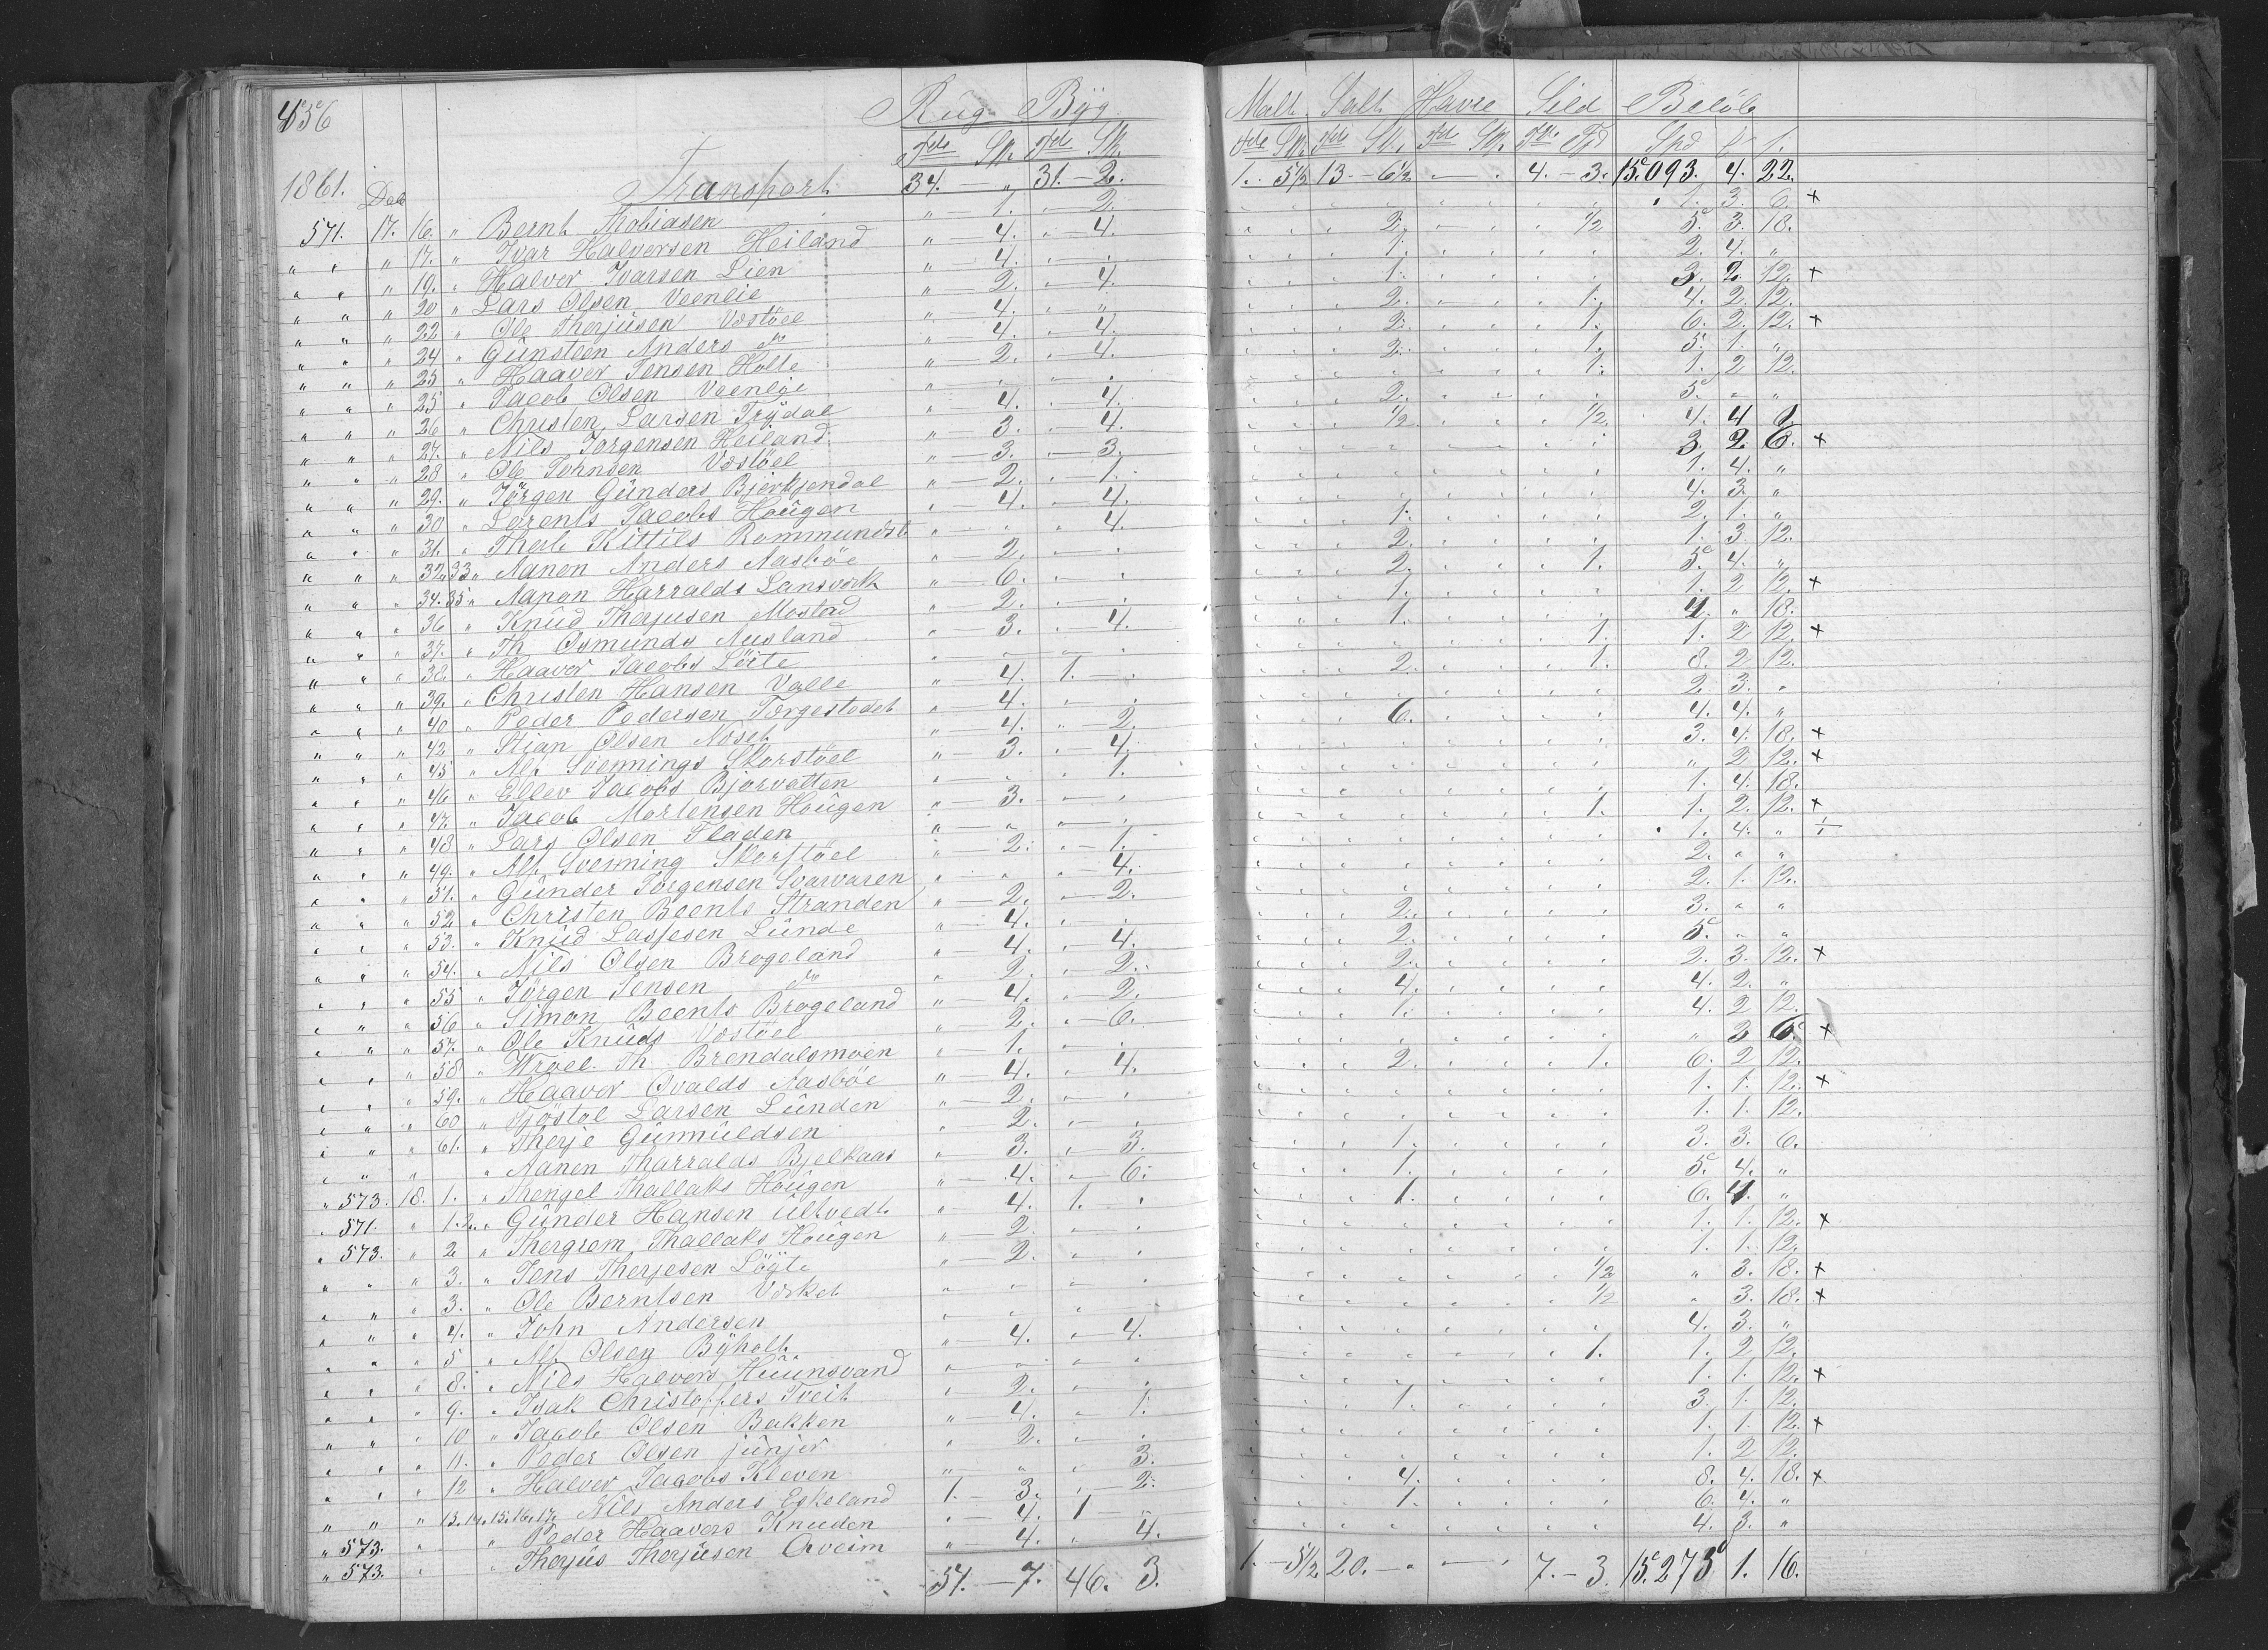 456
Rug Byg Malt Salt Havre Sild Beløb
Tde Sk. Tde Sk. Tde Sk. Tde Sk. Tde Sk. Tde Fd Spd
1861. Dec Transport 34. — „ 31. — 2. 1. 5 1/2 13 — 6 1/2 — . 4. — 3. 15.093. 4. 22.
571. 17. 16. „ Bernt Tobiasen „ — 1. „ — 2. 1. 3. 6. +
„ „ „ 17. „ Ivar Halversen Heiland „ — 4. „ — 4. 2. 1/2 5. 3. 18.
„ „ „ 19. „ Halver Ivarsen Lien „ — 4. 1. 2. 4. „
„ „ „ 20 „ Lars Olsen Veenlie „ — 2. „ — 4. 1. 3. 2. 12. +
„ „ „ 22 „ Ole Therjusen Vostöel „ — 4. „ „ 2. 1. 4. 2. 12.
„ „ „ 24 „ Gunsteen Anders do „ — 4. „ — 4. 2. 1. 6. 2. 12. +
„ „ „ 25 „ Haaver Jensen Holte „ — 2. „ — 4. 2. 1. 5. 1. „
„ „ „ 25 „ Jacob Olsen Veenlie 1. 1. 2 12.
„ „ „ 26 „ Christen Larsen Trydal „ 4. „ — 4. 2. 5. „ „
„ „ „ 27. „ Nils Jorgensen Heiland „ — 3. „ — 4. 1/2 1/2 4. 4
„ „ „ 28 „ Ole Johnsen Vostöel „ — 3. „ — 3. 3. 2. 6. +
„ „ „ 29. „ Jörgen Gunders Bjorkjendal „ — 2. „ — 1. 1. 4. „
„ „ „ 30 „ Lorents Jacobs Hougen „ 4. „ — 4. 4. 3. „
„ „ „ 31. „ Kittils Rommundst „ 4. 1. 2. 1. „
„ „ „ 32.33 „ Aanen Anders Aasböe „ — 2. 2. 1. 3. 12.
„ „ „ 34.35 „ Aanon Harralds Lansverk „ — 6. 2. 1. 5. 4. „
„ „ „ 36 „ Knud Therjusen Mostad „ — 2. 1. 1. 2 12. +
„ „ „ 37. „ Th Osmunds Ausland „ 3. „ 4. 1. 4. „ 18.
„ „ „ 38. „ Haaver Jacobs Löite 1. 1. 2 12. +
„ „ „ 39. „ Christen Hansen Valle „ 4. 1. — . 2. 1. 8. 2 12.
„ „ „ 40 „ Peder Pedersen Torgestedet „ — 4. 2. 3. „
„ „ „ 42 „ Stian Olsen Noset „ — 4. „ — 2. 6. 4. 4. „
„ „ „ 45 „ Alf Svennings Skorstöel „ — 3. „ 4. 3. 4. 18. +
„ „ „ 46 „ Ellev Jacobs Bjorvatten „ 1. „ 2 12. +
„ „ „ 47. „ Jacob Mortensen Hougen „ — 3. 1. 4. 18.
„ „ „ 48 „ Lars Olsen Fladen 1. 1. 2. 12. +
„ „ „ 49. „ Alf Svenning Skorstöel „ — 2. „ — 1. 1. 4. „
„ „ „ 51. „ Gunder Jorgensen Svarvaren „ 4. 2. „ „
„ „ „ 52 „ Christen Beents Stranden „ — 2. „ — 2. 2. 1. 12.
„ „ „ 53. „ Knud Lassesen Lunde „ — 4. 2. 3. „ „
„ „ „ 54. „ Nils Olsen Brogeland „ 4. „ — 4. 2. 5. „ „
„ „ „ 55 „ Jörgen Jensen do „ — 2. „ — 2. 2. 2. 3. 12. +
„ „ „ 56 „ Simon Beents Brogeland „ — 4. „ — 2. 4. 4. 2. „
„ „ „ 57. „ Ole Knuds Vostöel „ — 2. „ — 6. 1. 4. 2 12.
„ „ „ 58 „ Wroel Th Brendalsmoen „ — 1. „ 3 6. +
„ „ „ 59. „ Haaver Ovalds Aasböe „ — 4. „ 4. 2. 1. 6. 2 12.
„ „ „ 60 „ Tjöstöl Larsen Lunden „ — 2. 1. 1. 12. +
„ „ „ 61. „ Therje Gunnuldsen „ 2. 1. 1. 12.
„ „ „ „ Aanen Tharralds Bjelkaas „ 3. „ — 3. 1. 3. 3. 6.
„ 573. 18. 1. „ Thengel Thallaks Hougen „ — 4. „ — 6. 1. 5. 4. „
„ 571. „ 1.2. „ Gunder Hansen Ultvedt „ 4. 1. „ 1. 6. 4. „
„ 573. „ 2 „ Thergrem Thallaks Hougen „ — 2. 1. 1. 12. +
„ „ „ 3. „ Jens Therjesen Löyte „ 2. 1. 1. 12.
„ „ „ 3. „ Ole Berntsen Vorket 1/2 „ 3. 18. +
„ „ „ 4. „ John Andersen 1/2 „ 3. 18. +
„ „ „ 5 „ Alf Olsen Byholt „ — 4. „ — 4. 4. 3. „
„ „ „ 8. „ Nids Halvors Huunsvand 1. 1. 2 12.
„ „ „ 9. „ Isak Christoffers Tveit „ 2. 1. 1. 12. +
„ „ „ 10 „ Jacob Olsen Bakken „ 4. „ 1. 1. 3. 1. 12.
„ „ „ 11. „ Peder Olsen junjer „ 2. 1. 1. 12. +
„ „ „ 12 „ Halver Jacobs Kleven „ 3. 1. 2 12.
„ „ „ 13.14.15.16.17. Nils Anders Eskeland 1. — 3. „ — 2. 4. 8. 4. 18. +
„ 573. „ „ Peder Haavers Knuden „ 4. 1 — 1. 6. 4. „
„ 573. „ „ Therjus Therjusen Qveim „ — 4. „ 4. 4. 3. „
54. — 7. 46. 3. 1. — 5 1/2. 20. — „ — „ 7. — 3. 15.275 1. 16.